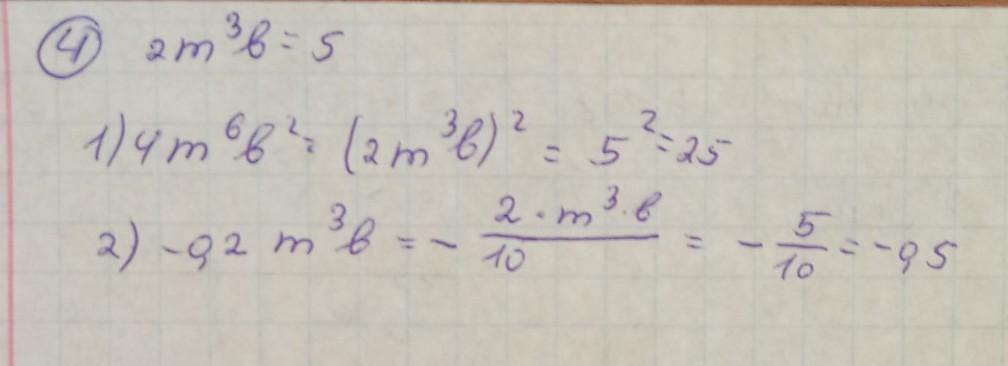 ④ 2m³b = 5
1) 4m⁶b² = (2m³b)² = 5² = 25
2) -0,2 m³b = - \frac{2 · m³ · b}{10} = - \frac{5}{10} = -0,5